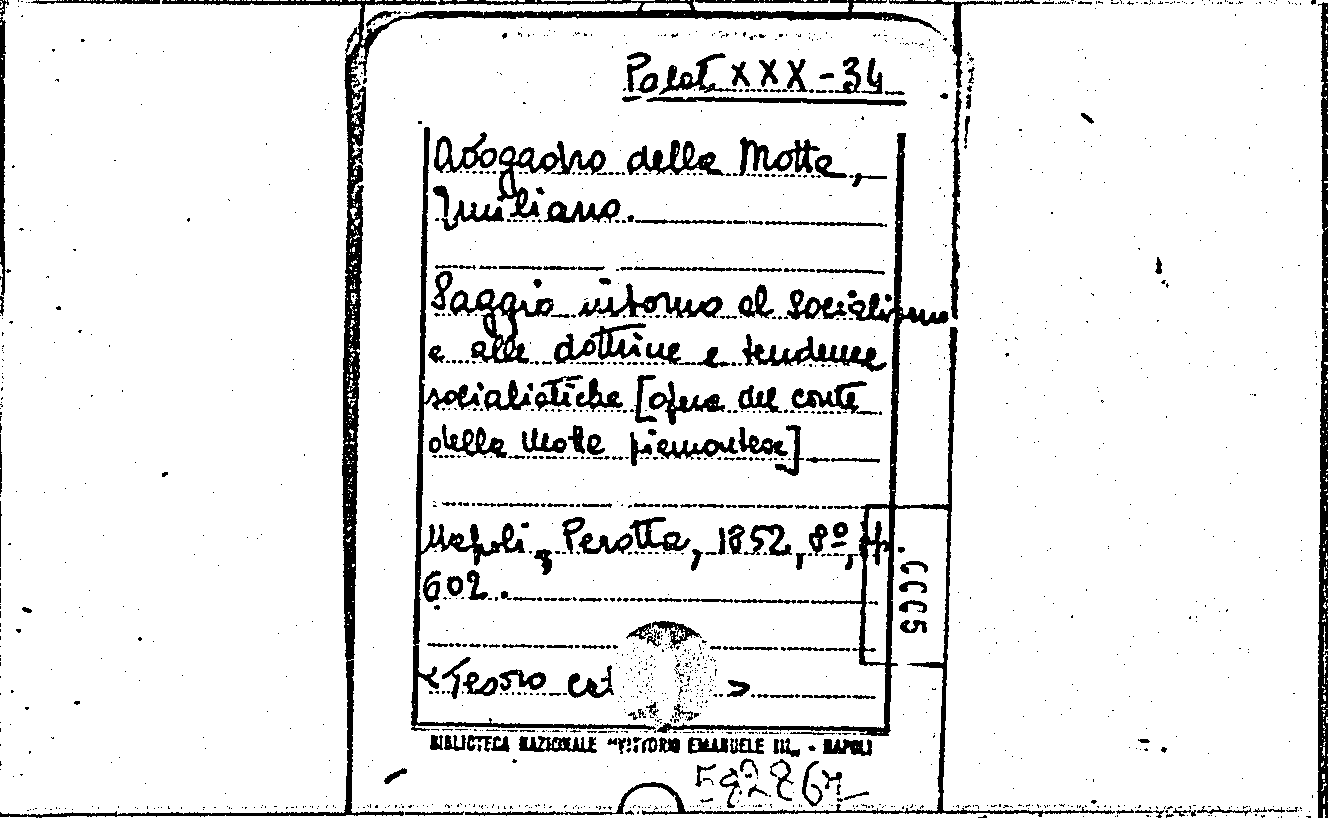 Palat. XXX-34
Avogadro della Motta,
Emiliano.
Saggio intorno al socialismo
e alle dottrine e tendenze
socialistiche [opera del conte
della Motta piemontese].
Napoli, Perotta, 1852, 8º, pp.
602.
BIBLIOTECA NAZIONALE "VITTORIO EMANUELE III„ - NAPOLI